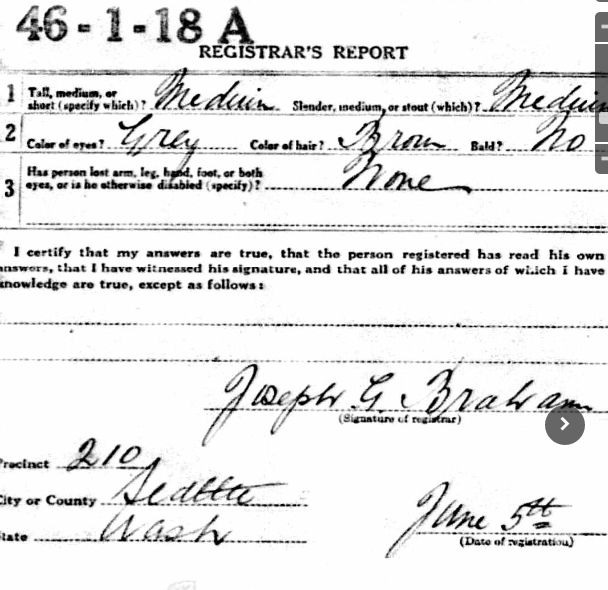 46-1-18 A
REGISTRAR'S REPORT
1 Tall, medium, or short (specify which)? Medium Slender, medium, or stout (which)? Medium
2 Color of eyes? Grey Color of hair? Brown Bald? No
3 Has person lost arm, leg, hand, foot, or both eyes, or is he otherwise disabled (specify)? None
I certify that my answers are true, that the person registered has read his own
answers, that I have witnessed his signature, and that all of his answers of which I have
knowledge are true, except as follows:
Joseph G.
(Signature of registrar)
Precinct 210
City or County Seattle
State Wash
June 5th
(Date of registration)